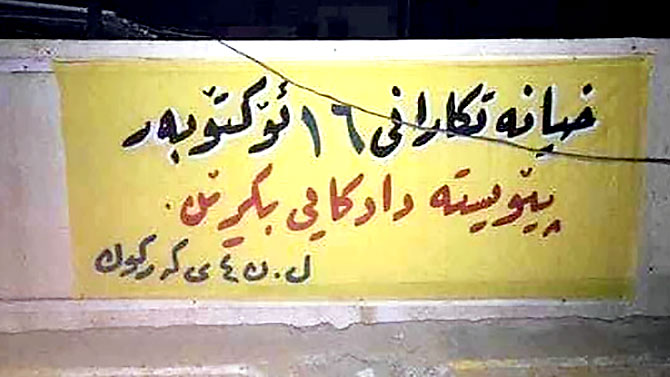 خیانەتکارانی ١٦ ئۆکتۆبەر
پێویستە دادگایی بکرێن.
ل.ن ٤ی کەرکوک